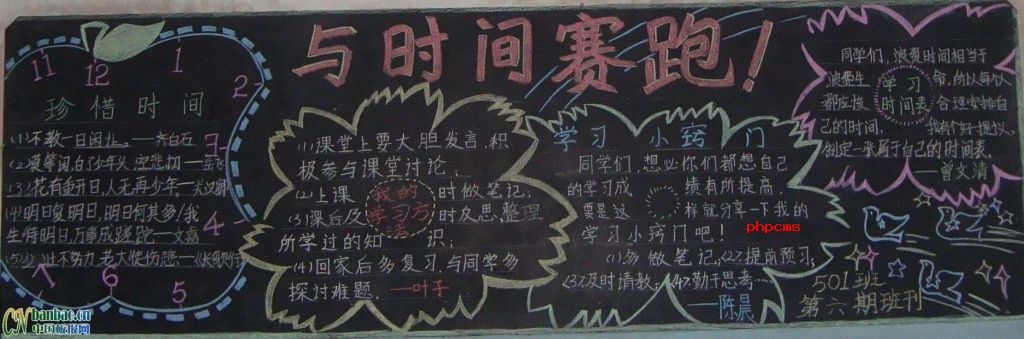 与时间赛跑!
11
12
1
2
3
4
5
6
7
珍惜时间
(1)不教一日闲过。——齐白石
(2)莫等闲,白了少年头,空悲切——岳飞
(3)花有重开日,人无再少年——
(4)明日复明日,明日何其多!我
生待明日,万事成蹉跎——文嘉
(5)少壮不努力,老大徒伤悲——《长歌行》
我的
学习方
法
(1)课堂上要大胆发言,积
极参与课堂讨论;
(2)上课 时做笔记;
(3)课后及 时反思,整理
所学过的知 识;
(4)回家后多复习,与同学多
探讨难题. ——叶子
学习 小窍 门
同学们,想必你们都想自己
的学习成 绩有所提高.
要是这 样就分享一下我的
学习小窍门吧!
(1)多做笔记;(2)提前预习;
(3)及时请教;(4)勤于思考……
——陈晨
phpcms
学习
时间表
同学们,浪费时间相当于
浪费生 命,所以每个人
都应该 合理安排自
己的时间. 我有个好提议,
制定一张属于自己的时间表.
——曾文清
501班
第六期班刊
CN banbao.cn
中国板报网